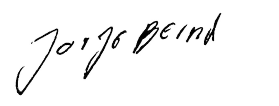 Jorge Bernd